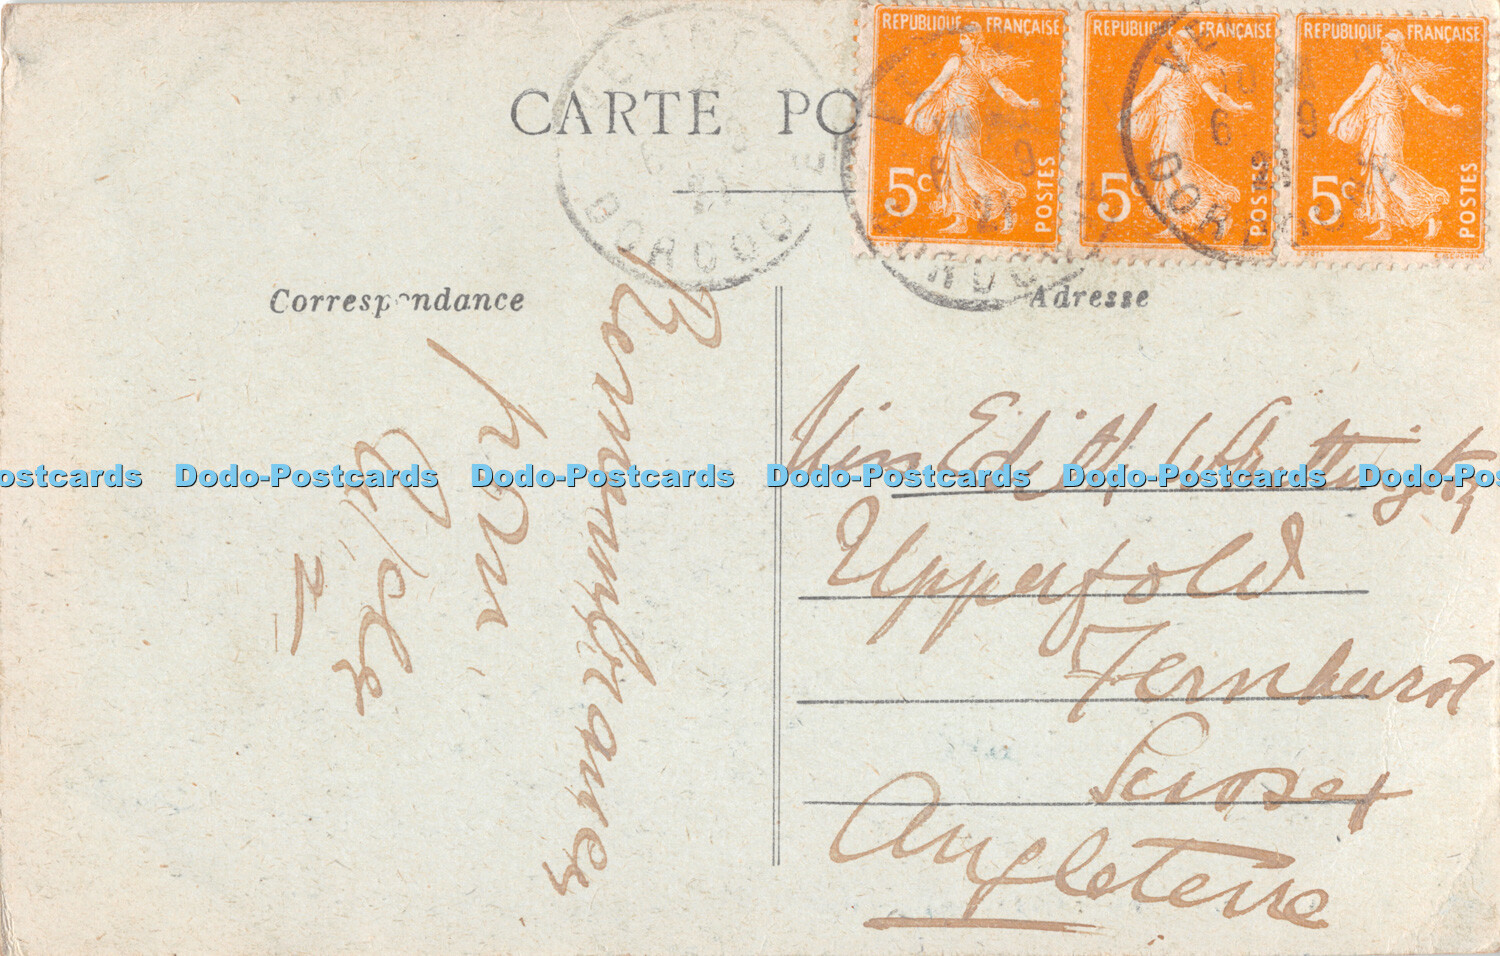 CARTE PO
REPUBLIQUE FRANÇAISE
5c POSTES
REPUBLIQUE FRANÇAISE
5c POSTES
REPUBLIQUE FRANÇAISE
5c POSTES
DORDOGNE
6 9
21
Correspondance
Adresse
Remembrances
from
Clyde
Miss Edith
Upperfold
Fernhurst
Sussex
Angleterre
Dodo-Postcards Dodo-Postcards Dodo-Postcards Dodo-Postcards